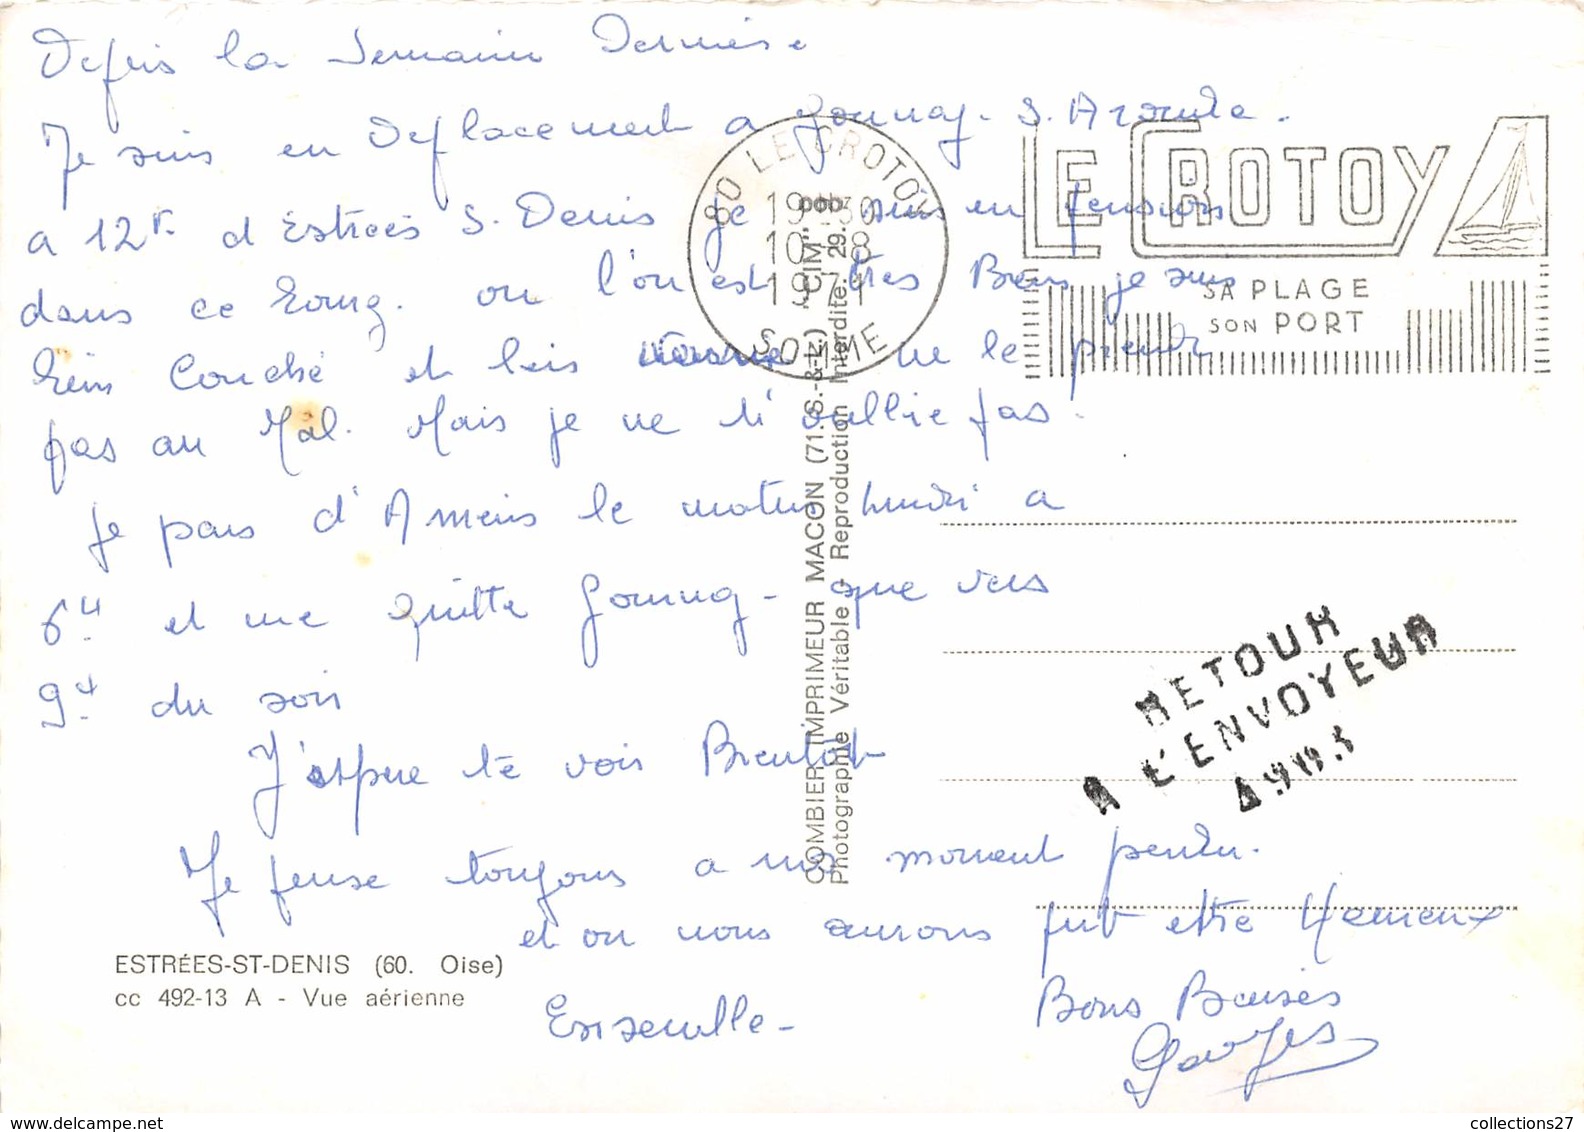 Depuis la semaine Dernière
Je suis en deplacement a Gournay. S. Aronde.
a 12 K d'Estrées S. Denis je suis en pension
dans ce bourg. ou l'on est tres Bien je suis
bien Couché et ne le prend
pas au Mal. Mais je ne t'oublie pas.
Je pars d'Amiens le matin lundi a
6H et me quitte Gournay que vers
9H du soir
J'espere te voir Bientot
Je pense toujours a nos moment perdu.
et on nous aurons put etre Heureux
Ensemble -
Bons Baises
Georges
80 LE CROTOY
19H30
10 - 8
1971
SOMME
LE CROTOY
SA PLAGE
SON PORT
RETOUR
A L'ENVOYEUR
COMBIER IMPRIMEUR MACON (71. S.-&-L.) "CIM"
Photographie Véritable - Reproduction Interdite. 29.
ESTRÉES-ST-DENIS (60. Oise)
cc 492-13 A - Vue aérienne
www.delcampe.net
collections27